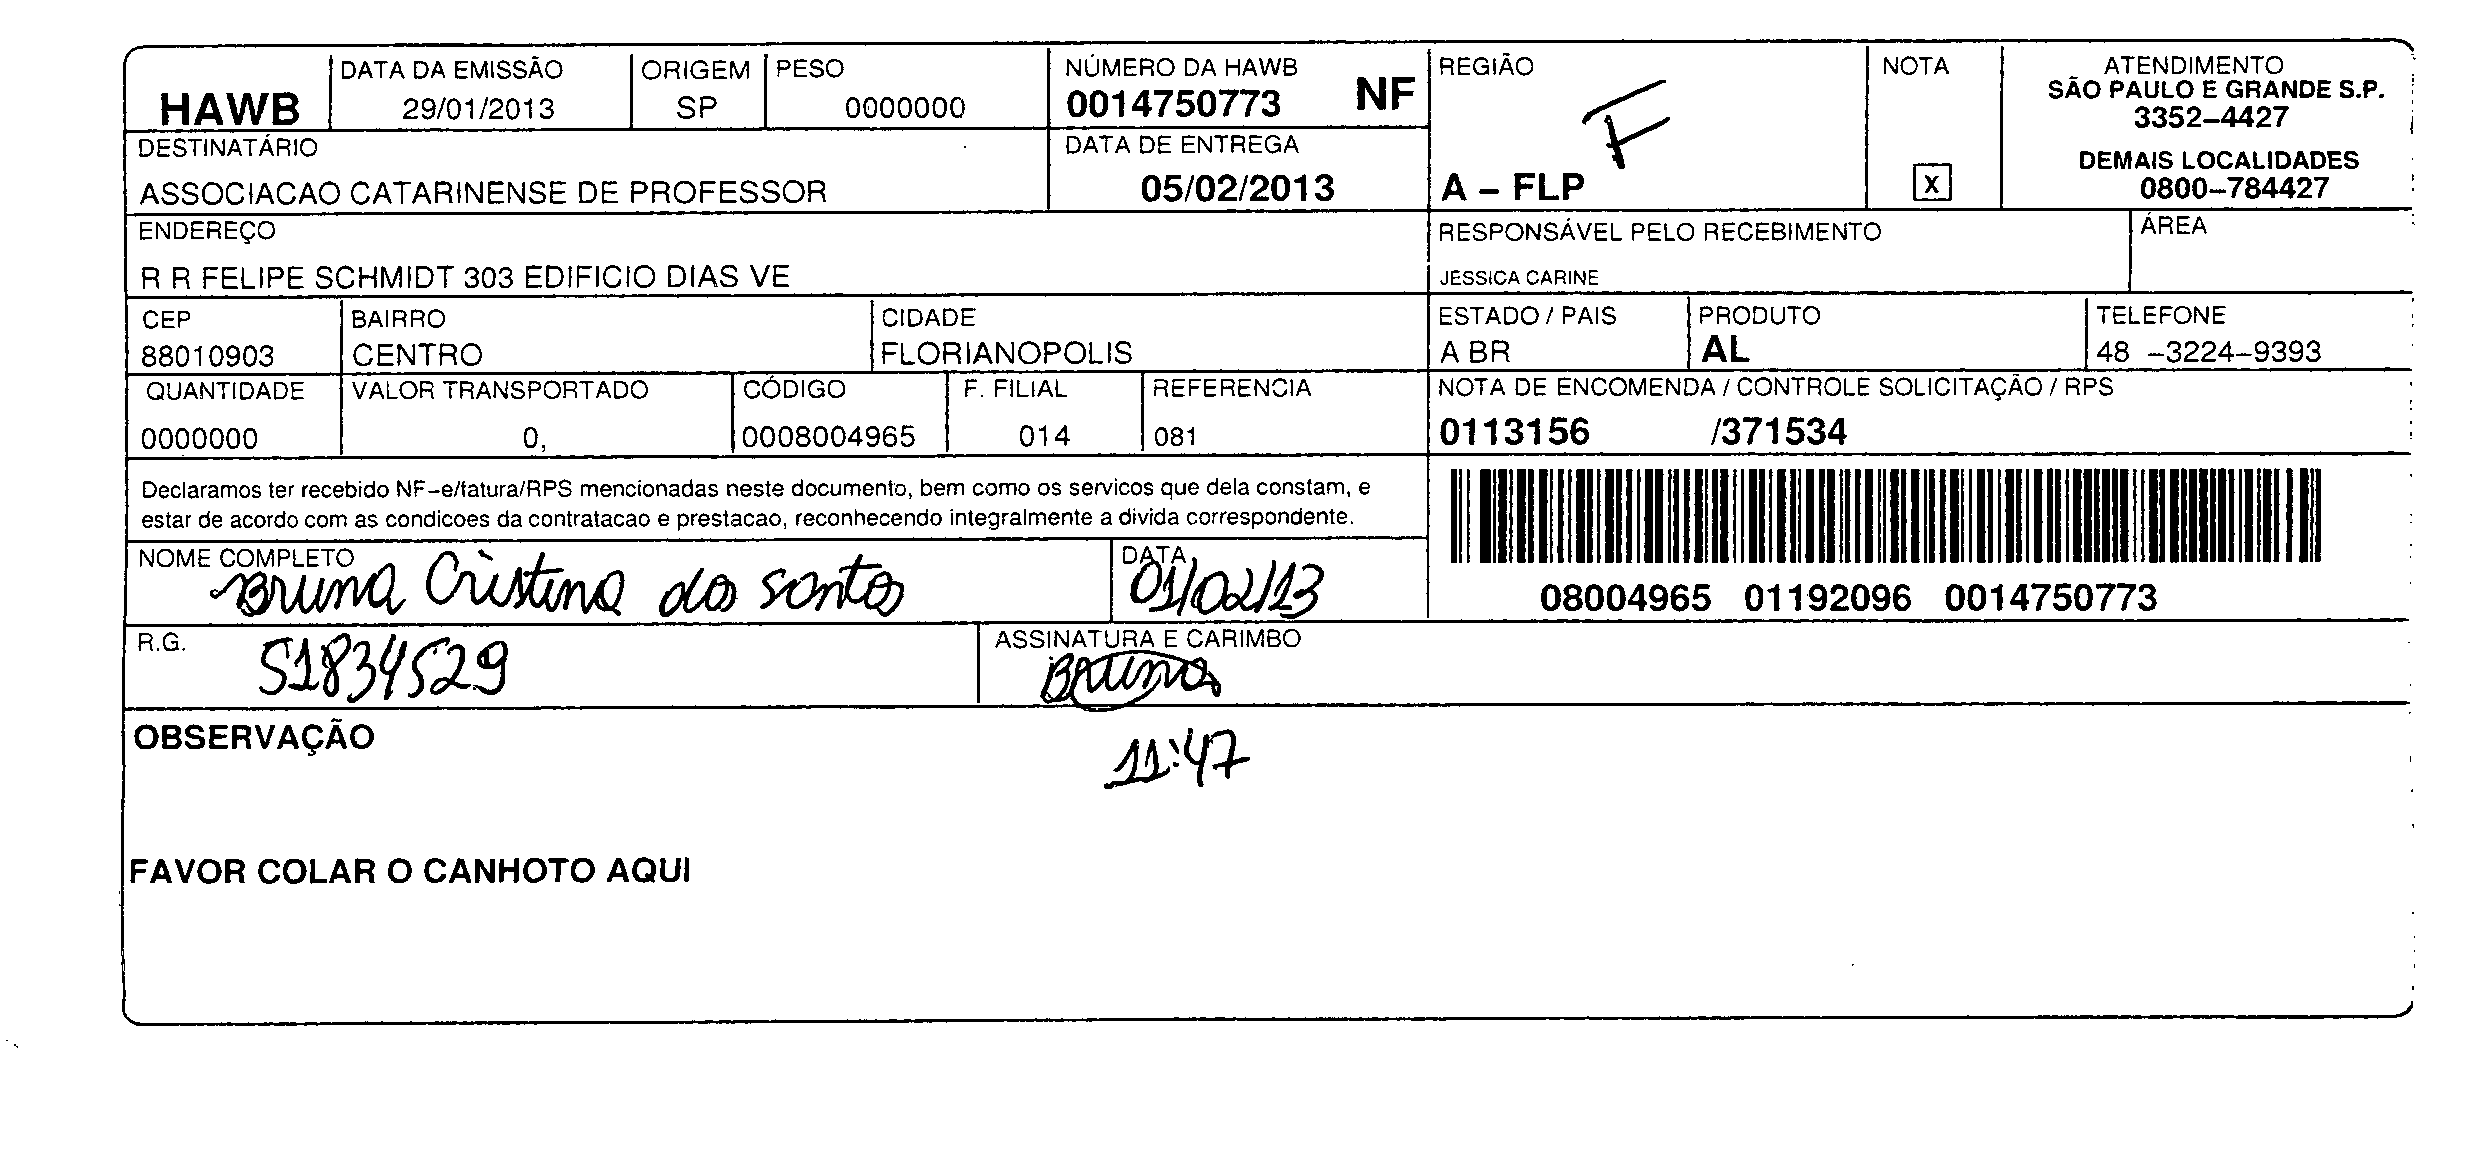 HAWB
DATA DA EMISSÃO
29/01/2013
ORIGEM
SP
PESO
0000000
NÚMERO DA HAWB
0014750773 NF
REGIÃO
F
A – FLP
NOTA
X
ATENDIMENTO
SÃO PAULO E GRANDE S.P.
3352–4427
DEMAIS LOCALIDADES
0800–784427
DESTINATÁRIO
ASSOCIACAO CATARINENSE DE PROFESSOR
DATA DE ENTREGA
05/02/2013
ENDEREÇO
R R FELIPE SCHMIDT 303 EDIFICIO DIAS VE
RESPONSÁVEL PELO RECEBIMENTO
JESSICA CARINE
ÁREA
CEP
88010903
BAIRRO
CENTRO
CIDADE
FLORIANOPOLIS
ESTADO / PAIS
A BR
PRODUTO
AL
TELEFONE
48 –3224–9393
QUANTIDADE
0000000
VALOR TRANSPORTADO
0,
CÓDIGO
0008004965
F. FILIAL
014
REFERENCIA
081
NOTA DE ENCOMENDA / CONTROLE SOLICITAÇÃO / RPS
0113156 /371534
Declaramos ter recebido NF–e/fatura/RPS mencionadas neste documento, bem como os servicos que dela constam, e
estar de acordo com as condicoes da contratacao e prestacao, reconhecendo integralmente a divida correspondente.
08004965 01192096 0014750773
NOME COMPLETO
Bruna Cristina dos Santos
DATA
01/02/13
R.G.
51834529
ASSINATURA E CARIMBO
Bruna
OBSERVAÇÃO
11:47
FAVOR COLAR O CANHOTO AQUI